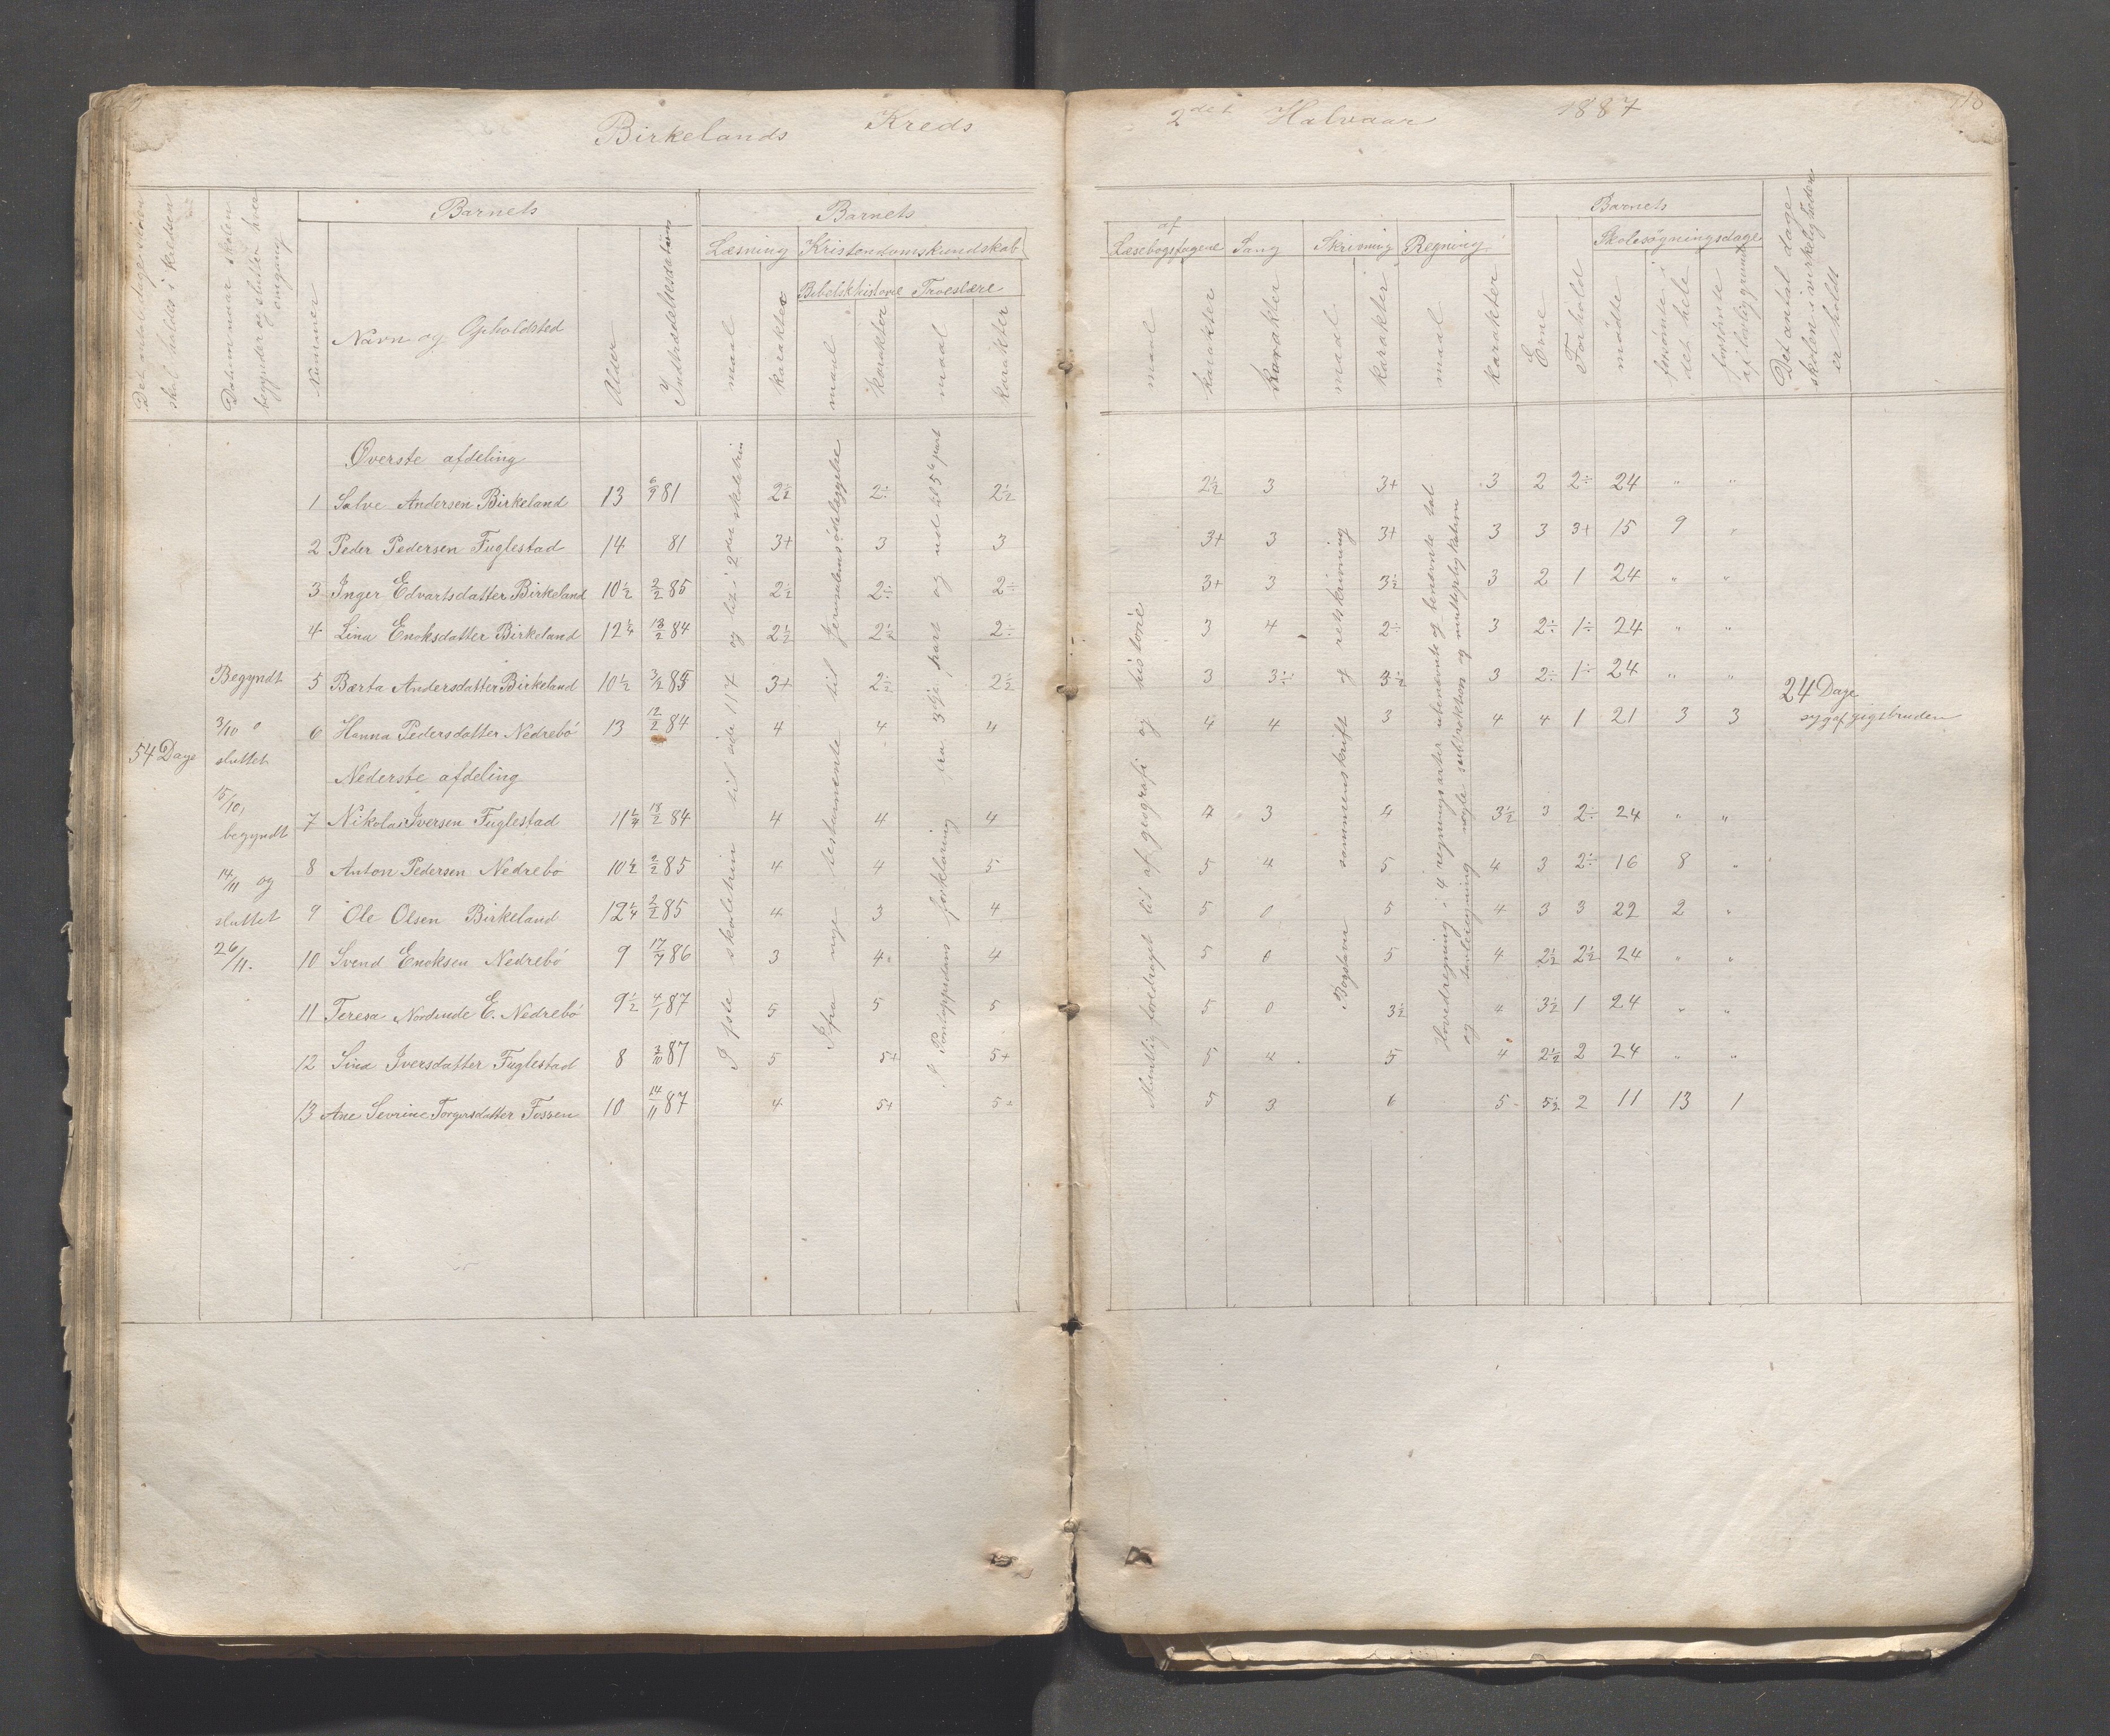 Birkelands Kreds
2det Halvaar 1887
Det antal dage skolen skal holdes i kredsen
Datum naar skolen begynder og slutter hver omgang
Nummer
Barnets
Navn og Opholdsted
Alder
Indtrædelsesdatum
Barnets
Læsning
Kristendomskundskab
Bibelskhistorie Troeslære
maal karakter maal karakter maal karakter
af
Læsebogsfagene Sang Skrivning Regning
maal karakter karakter maal karakter maal karakter
Barnets
Evne Forhold
Skolesøgningsdage
mødte
forsømte i det hele
forsømte af lovlig grund
Det antal dage skolen i virkeligheden er holdt
54 Dage
Begyndt
3/10 o
sluttet
15/10,
begyndt
14/11 og
sluttet
26/11.
Øverste afdeling
1 Salve Andersen Birkeland 13 6/9 81 2½ 2÷ 2½ 2½ 3 3+ 3 2 2÷ 24 " "
2 Peder Pedersen Fuglestad 14 81 3+ 3 3 3+ 3 3+ 3 3 3+ 15 9 "
3 Inger Edvartsdatter Birkeland 10½ 2/2 85 2½ 2÷ 2÷ 3+ 3 3½ 3 2 1 24 " "
4 Lina Enoksdatter Birkeland 12¼ 13/2 84 2½ 2½ 2÷ 3 4 2÷ 3 2÷ 1÷ 24 " "
5 Bærta Andersdatter Birkeland 10½ 3/2 85 3+ 2½ 2½ 3 3÷ 3½ 3 2÷ 1÷ 24 " "
6 Hanna Pedersdatter Nedrebø 13 12/2 84 4 4 4 4 4 3 4 4 1 21 3 3
24 Dage
syg af gigtbruden
Nederste afdeling
7 Nikolai Iversen Fuglestad 11¼ 18/2 84 4 4 4 4 3 4 3½ 3 2÷ 24 " "
8 Anton Pedersen Nedrebø 10½ 2/2 85 4 4 5 5 4 5 4 3 2÷ 16 8 "
9 Ole Olsen Birkeland 12¼ 2/2 85 4 3 4 5 0 5 4 3 3 22 2 "
10 Svend Enoksen Nedrebø 9 17/7 86 3 4÷ 4 5 0 5 4 2½ 2½ 24 " "
11 Teresa Nordinde E. Nedrebø 9½ 4/1 87 5 5 5 5 0 3½ 4 3½ 1 24 " "
12 Sina Iversdatter Fuglestad 8 3/10 87 5 5+ 5+ 5 4 5 4 2½ 2 24 " "
13 Ane Sevrine Torgersdatter Fossen 10 14/11 87 4 5+ 5÷ 5 3 6 5 5½ 2 11 13 1
I 1ste skoletrin til side 117 og lidt i 2det skoletrin
Ifra nye testamente til Jerusalems ødelæggelse
I Pontoppidans forklaring fra 3die part og ud til 5te part
Mundtlig foredragt lidt af geografi og historie
Bogstaver sammenskrift og retskrivning
Hovedregning i 4 regningsarter ubenævnte og benævnte tal
og tavleregning nogle subtraktion og multiplikation